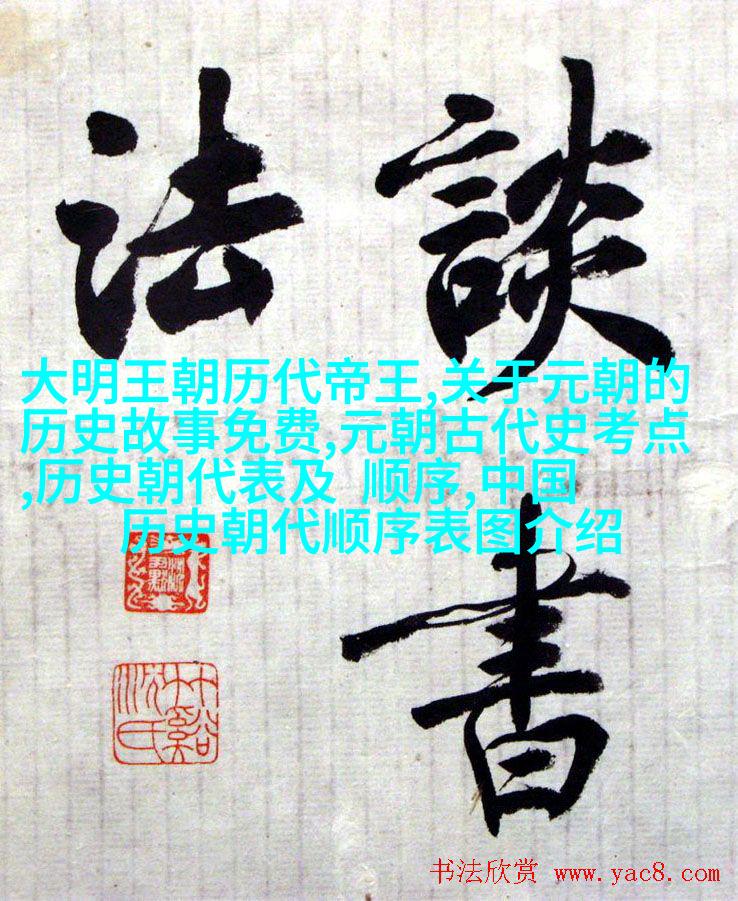 談書
法
大明王朝历代帝王,关于元朝的
历史故事免费,元朝古代史考点
,历史朝代表及  顺序,中国
历史朝代顺序表图介绍
书法欣赏 www.yac8.com